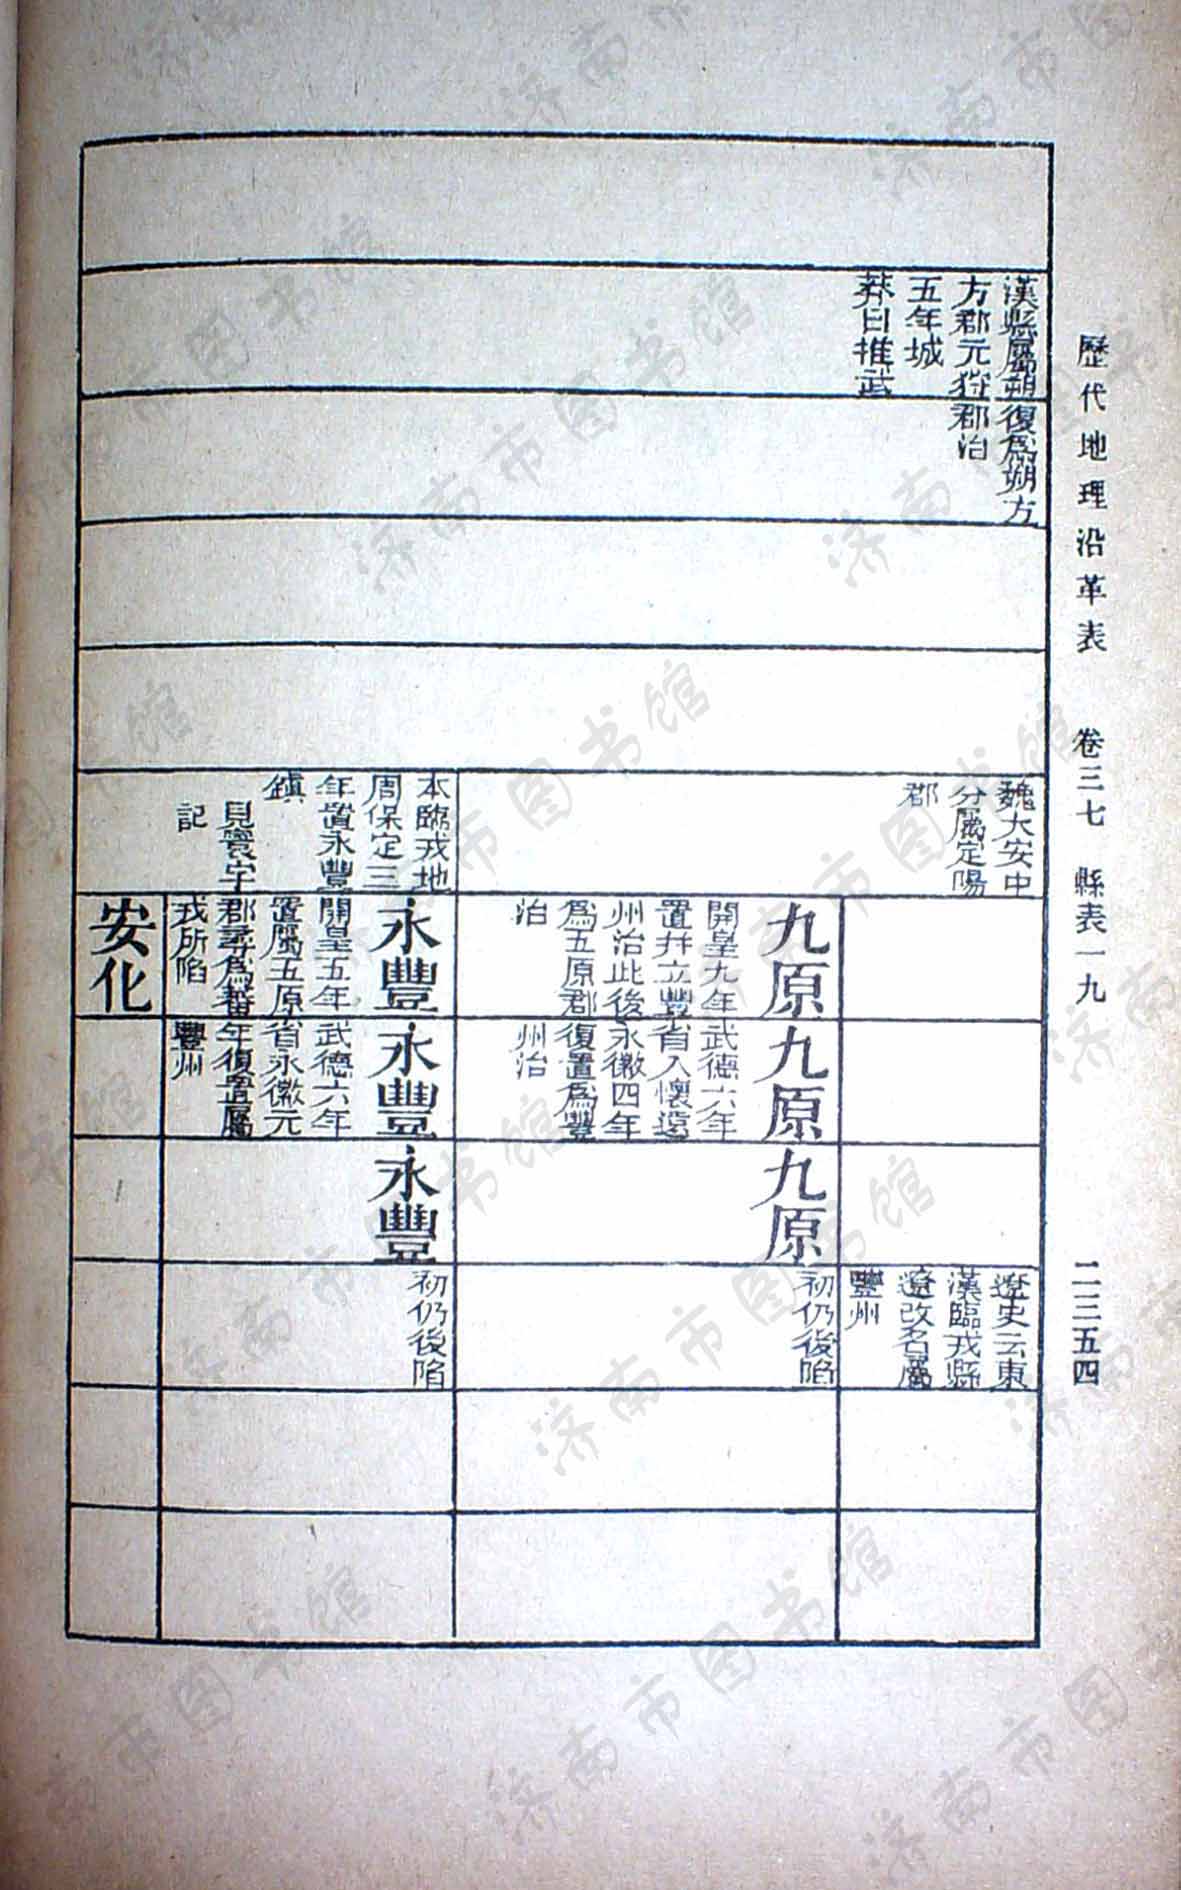 歷代地理沿革表　卷三七　縣表一九　二三五四
漢縣屬朔
方郡元狩
五年城
莽曰推武
復為朔方
郡治
魏大安中
分屬定陽
郡
本臨戎地
周保定三
年置永豐
鎮
見寰宇
記
九原
開皇九年
置并立豐
州治此後
為五原郡
治
永豐
開皇五年
置屬五原
郡尋為蕃
戎所陷
安化
九原
武德六年
省入懷遠
永徽四年
復置為豐
州治
永豐
武德六年
省永徽元
年復置屬
豐州
九原
永豐
遼史云東
漢臨戎縣
遼改名屬
豐州
初仍後陷
初仍後陷
济南市图书馆